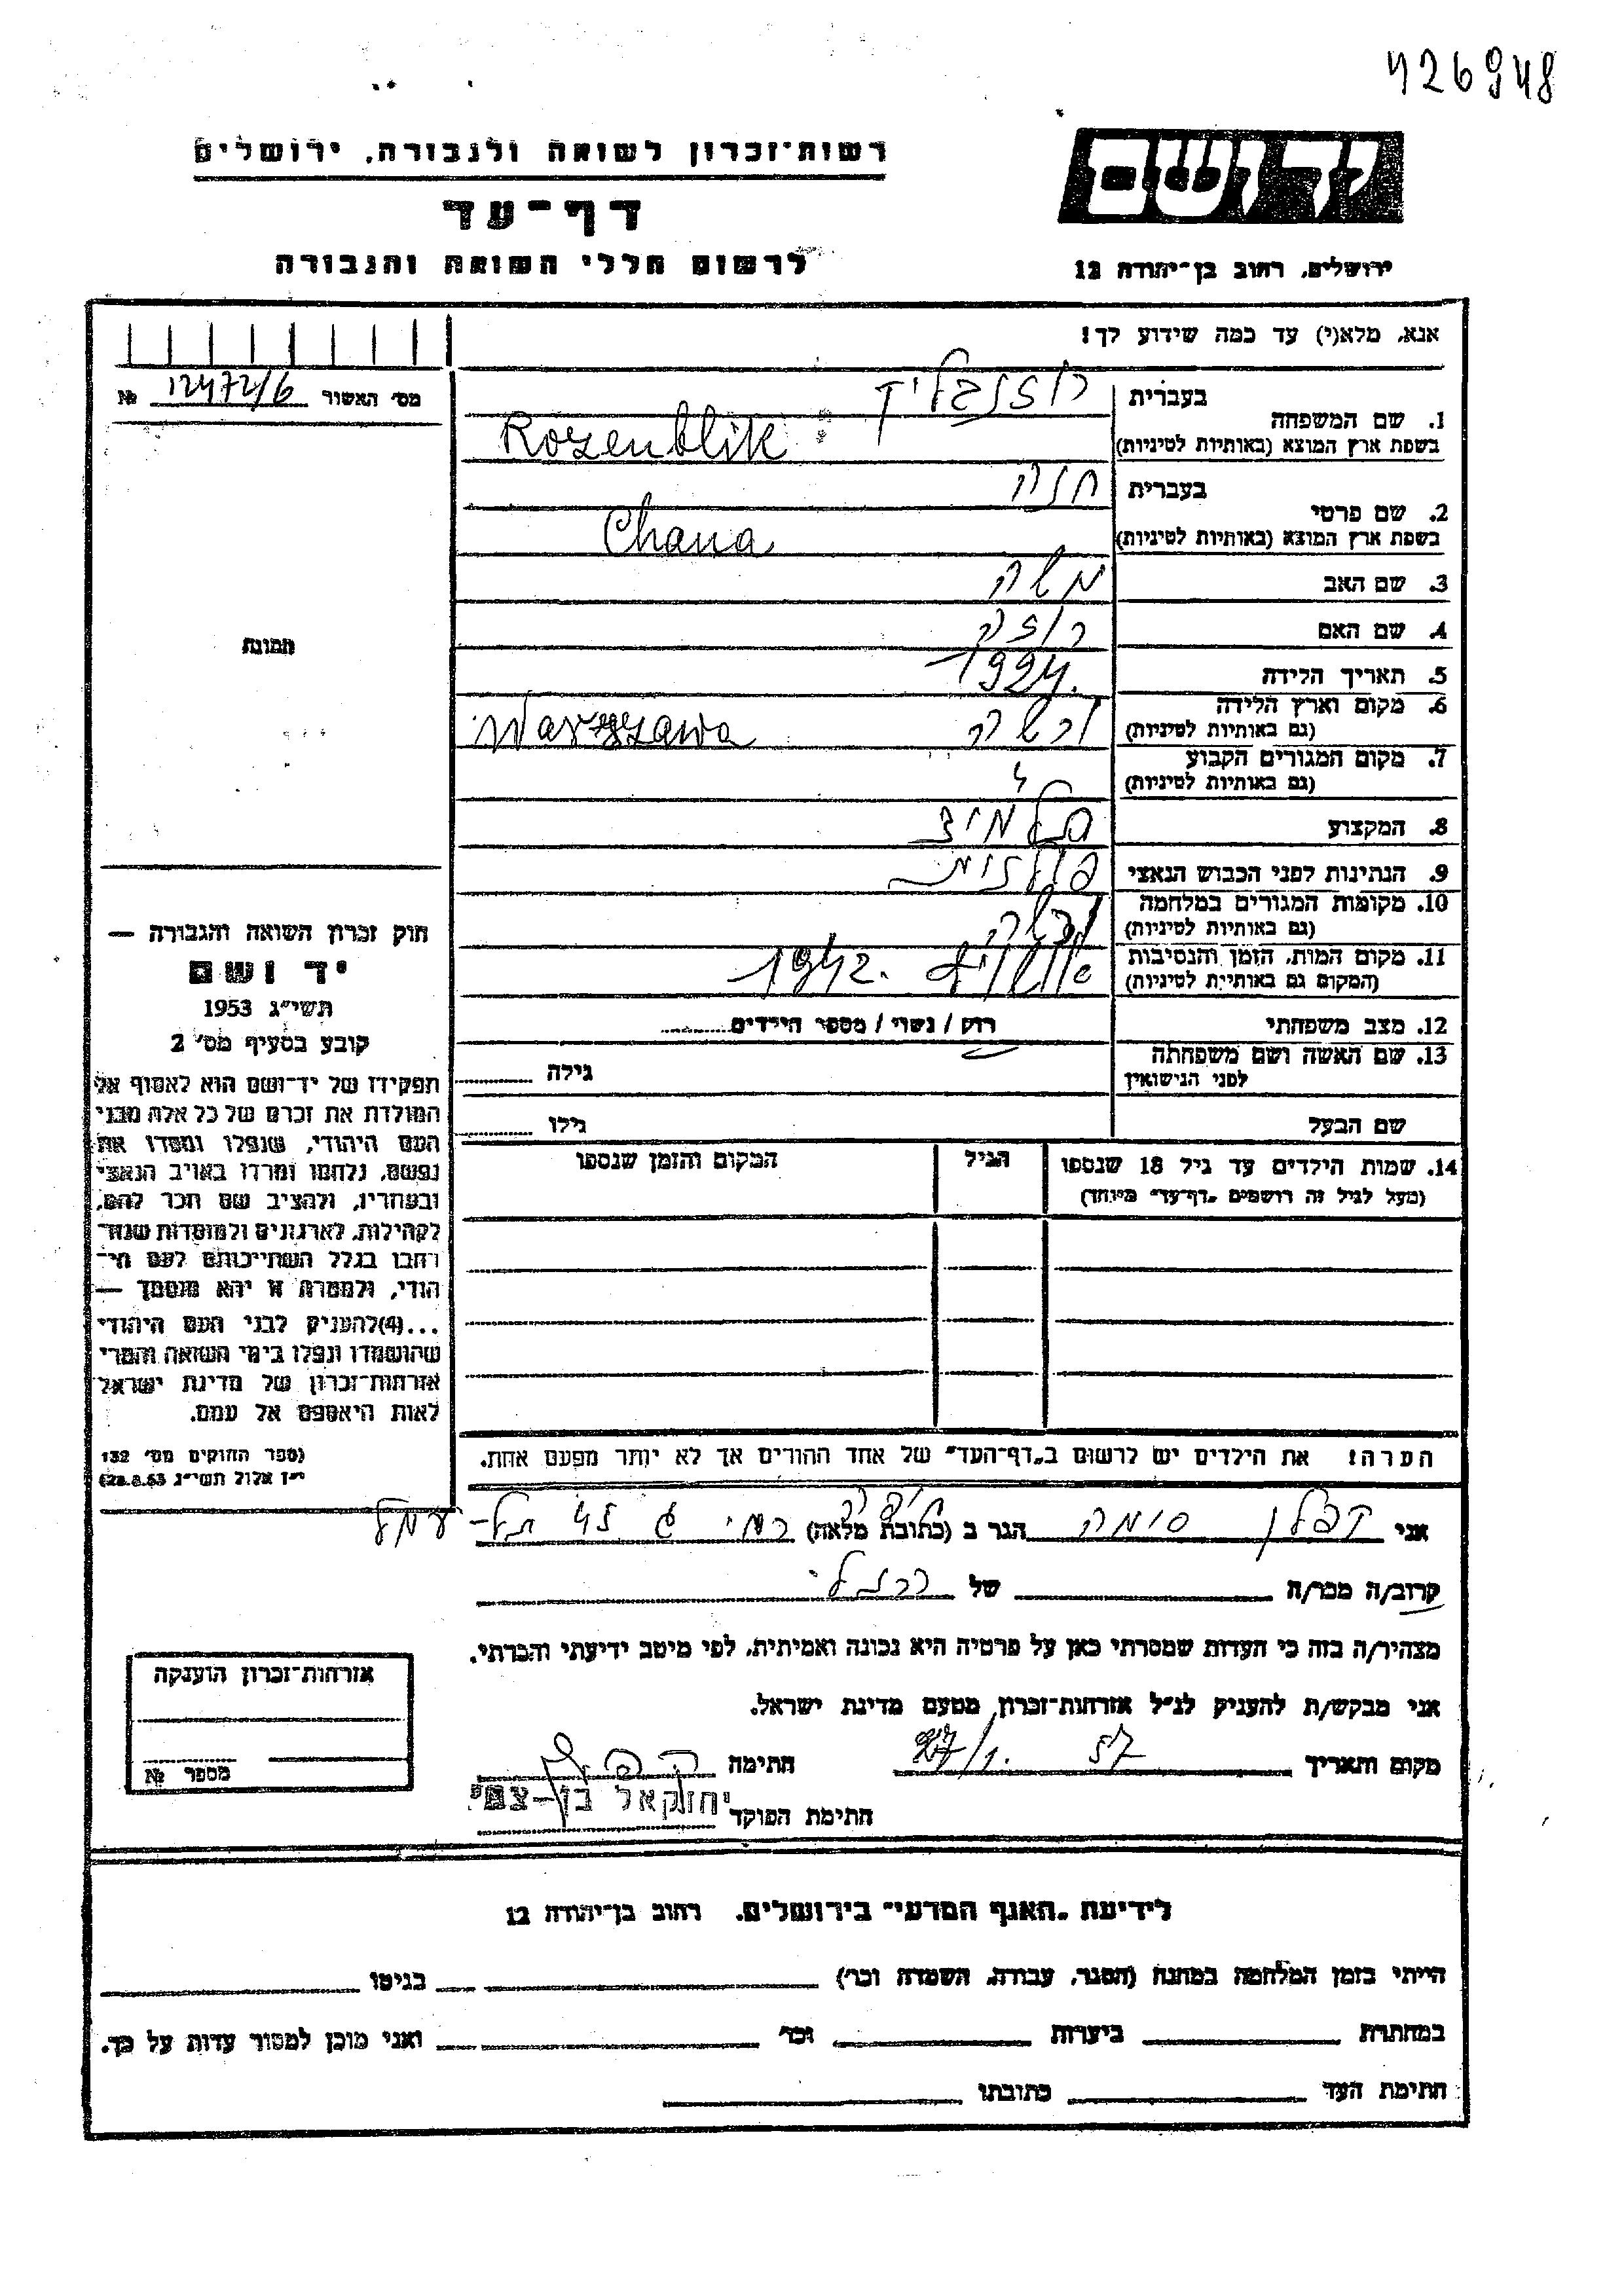 426948
רשות־זכרון לשואה ולגבורה, ירושלים
יד ושם
דף־עד
לרשום חללי השואה והגבורה
ירושלים, רחוב בן־יהודה 12
אנא, מלא(י) עד כמה שידוע לך!
מס׳ האשור 12472/6 №
1. שם המשפחה
בעברית רוזנבליק
בשפת ארץ המוצא (באותיות לטיניות) Rozenblik
2. שם פרטי
בעברית חנה
בשפת ארץ המוצא (באותיות לטיניות) Chana
3. שם האב משה
4. שם האם רוזה
5. תאריך הלידה 1924.
6. מקום וארץ הלידה ורשה Warszawa
(גם באותיות לטיניות)
7. מקום המגורים הקבוע
(גם באותיות לטיניות)
8. המקצוע
9. הנתינות לפני הכבוש הנאצי פולנית
10. מקומות המגורים במלחמה ורשה
(גם באותיות לטיניות)
11. מקום המות, הזמן והנסיבות 1942.
(המקום גם באותיית לטיניות)
12. מצב משפחתי רוק / נשוי / מספר הילדים
13. שם האשה ושם משפחתה
לפני הנישואין
גילה
שם הבעל גילו
14. שמות הילדים עד גיל 18 שנספו
(מעל לגיל זה רושמים „דף־עד״ מיוחד)
הגיל
המקום והזמן שנספו
הערה: את הילדים יש לרשום ב„דף־העד״ של אחד ההורים אך לא יותר מפעם אחת.
תמונה
חוק זכרון השואה והגבורה —
יד ושם
תשי״ג 1953
קובע בסעיף מס׳ 2
תפקידו של יד־ושם הוא לאסוף אל
המולדת את זכרם של כל אלה מבני
העם היהודי, שנפלו ומסרו את
נפשם, נלחמו ומרדו באויב הנאצי
ובעוזריו, ולהציב שם וזכר להם,
לקהילות, לארגונים ולמוסדות שנח־
רבו בגלל השתייכותם לעם הי־
הודי, ולמטרה זו יהא מוסמך —
...(4)להעניק לבני העם היהודי
שהושמדו ונפלו בימי השואה והמרי
אזרחות־זכרון של מדינת ישראל
לאות היאספם אל עמם.
(ספר החוקים מס׳ 132
י״ז אלול תשי״ג 28.8.53)
אני קפלן סומה הגר ב (כתובת מלאה) חיפה תל־עמל
קרוב/ה מכר/ה של
מצהיר/ה בזה כי העדות שמסרתי כאן על פרטיה היא נכונה ואמיתית, לפי מיטב ידיעתי והכרתי.
אני מבקש/ת להעניק לנ״ל אזרחות־זכרון מטעם מדינת ישראל.
מקום ותאריך 27/1. 57 חתימה
חתימת הפוקד יחזקאל בן־צבי
אזרחות־זכרון הוענקה
מספר №
לידיעת „האגף המדעי״ בירושלים. רחוב בן־יהודה 12
הייתי בזמן המלחמה במחנה (הסגר, עבודה, השמדה וכו׳) בגיטו
במחתרת ביערות וכו׳ ואני מוכן למסור עדות על כך.
חתימת העד כתובתו